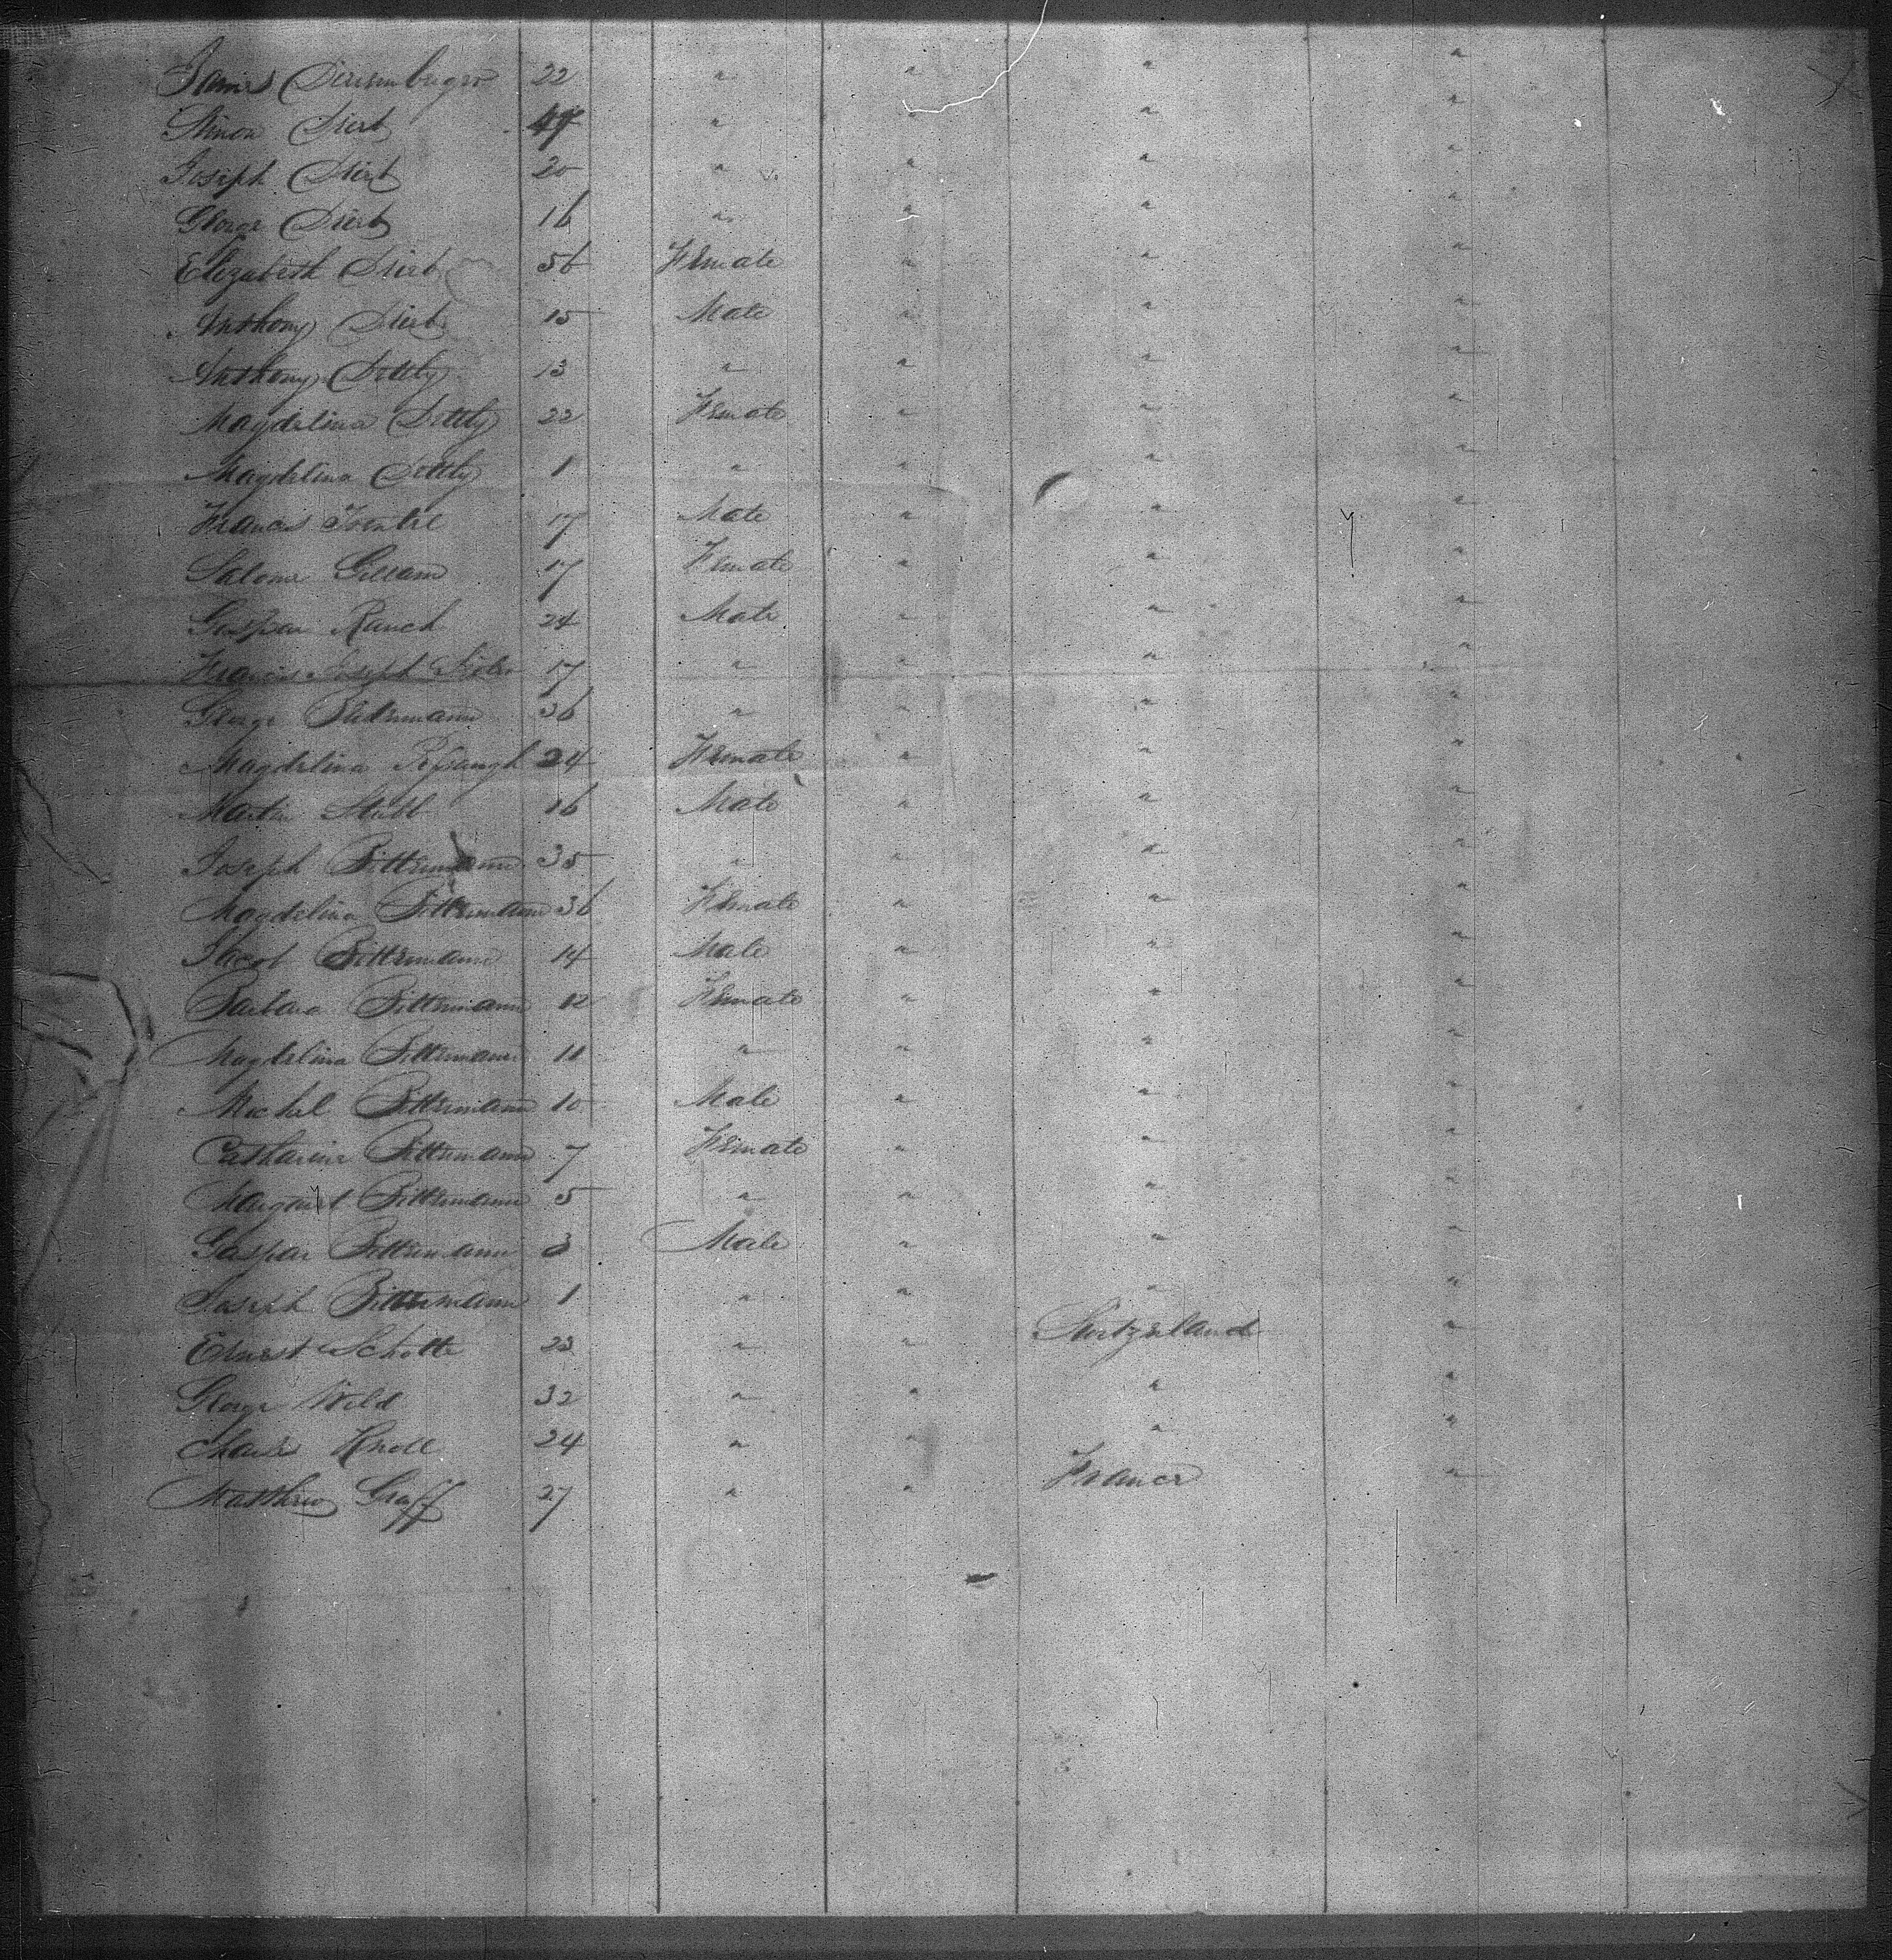 James 22 " " " "
Simon Dierb 47 " " " "
Joseph Dierb 20 " " " "
George Dierb 16 " " " "
Elizabeth Dierb 56 Female " " "
Anthony Dierb 15 Male " " "
Anthony 13 " " " "
Magdelina 22 Female " " "
Magdelina 1 " " " "
Francis 17 Male " " "
Salome Gilliam 17 Female " " "
Gaspar Rauch 24 Male " " "
Francis Joseph 17 " " " "
George 36 " " " "
Magdelina 24 Female " " "
Martin Stubb 16 Male " " "
Joseph Bittermann 35 " " " "
Magdelina Bittermann 36 Female " " "
Jacob Bittermann 14 Male " " "
Barbara Bittermann 12 Female " " "
Magdelina Bittermann 11 " " " "
Michel Bittermann 10 Male " " "
Catharine Bittermann 7 Female " " "
Margaret Bittermann 5 " " " "
Gaspar Bittermann 3 Male " " "
Joseph Bittermann 1 " " " "
Ernest Schotte 23 " " Switzerland "
George Wild 32 " " " "
Charles Knoll 24 " " " "
Matthew Graff 27 " " France "